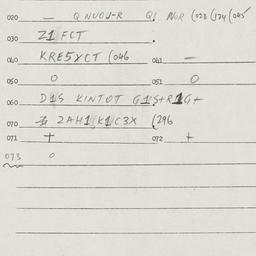 020 — Q NUOJ-R Q1 NGR (023 (124 (045
030 Z1FCT .
040 KRE5XCT (046 041 —
050 0 051 0
060 D1S KINTOT G1S+R1G+
070 ZAH1K1C3X (296
071 + 072 +
073 0